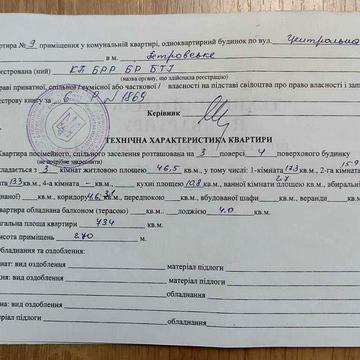 артира № 9 приміщення у комунальній квартирі, одноквартирний будинок по вул. Центральна
в м. Петровське
еєстрована (ний) КП БРР БР БТІ
(назва органу, що здійснила реєстрацію)
раві приватної, спільної / сумісної або часткової / власності на підставі свідоцтва про право власності і зап
естрову книгу за 6 Р № 1869
Керівник
ТЕХНІЧНА ХАРАКТЕРИСТИКА КВАРТИРИ
Квартира посімейного, спільного заселення розташована на 3 поверсі 4 поверхового будинку
(не потрібне закреслити)
15-9
з 3 кімнат житловою площею 46,5 кв.м., у тому числі: 1-кімната 17,3 кв.м., 2-га кімната
та 13,3 кв.м., 4-а кімната – кв.м., кухні площею 10,8 кв.м., ванної кімнати площею кв.м., вбиральні
2.7
наної) кв.м., коридору кв.м., передпокою кв.м., вбудованої шафи кв.м., веранди кв.м.
артира обладнана балконом (терасою) кв.м., лоджією 4.0 кв.м.
агальна площа квартири 73.4 кв.м.
исота приміщень 2.70 м.
обладнання та оздоблення:
нат: вид оздоблення матеріал підлоги
ня: вид оздоблення матеріал підлоги
обладнання
на: вид оздоблення
атеріал підлоги обладнання